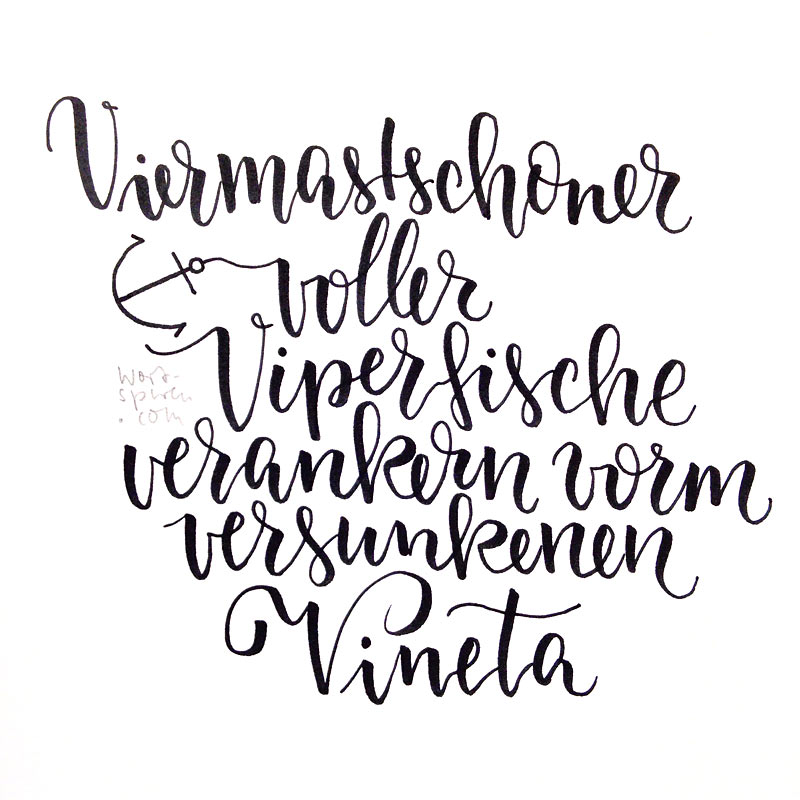 Viermastschoner
voller
Viperfische
wort-
spuren
.com
verankern vorm
versunkenen
Vineta